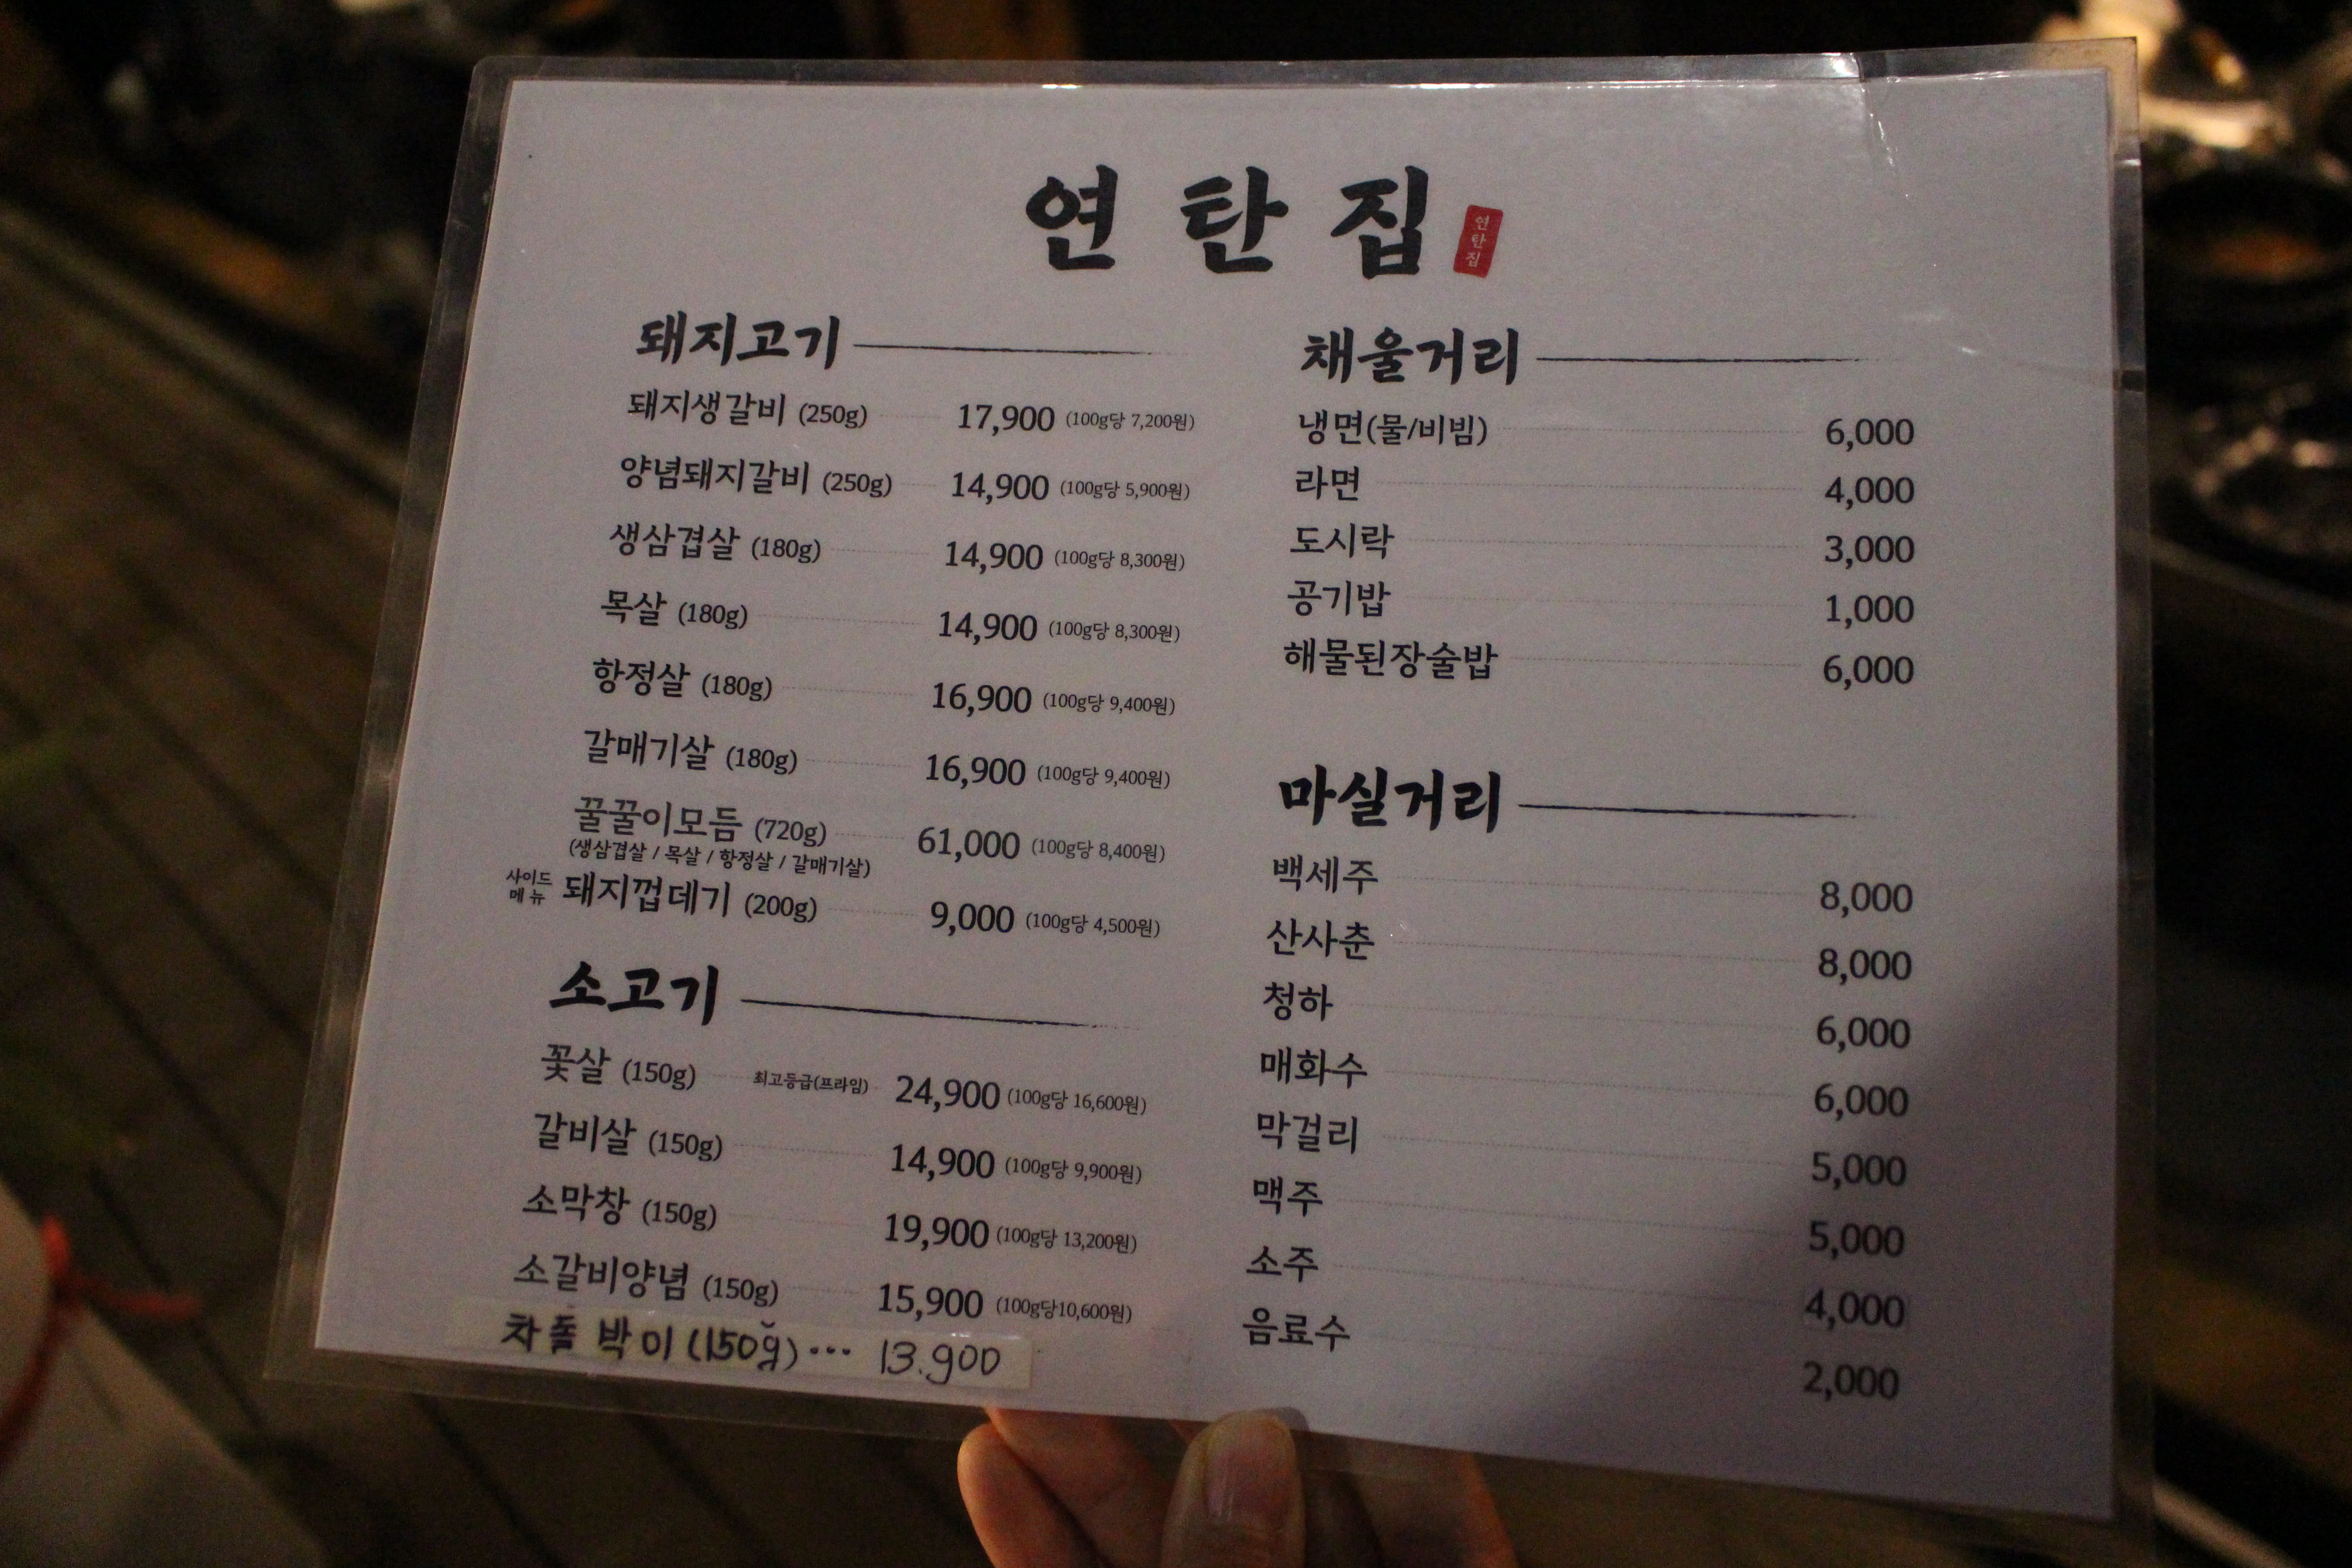 연탄집
연탄집
돼지고기
돼지생갈비 (250g) 17,900 (100g당 7,200원)
양념돼지갈비 (250g) 14,900 (100g당 5,900원)
생삼겹살 (180g) 14,900 (100g당 8,300원)
목살 (180g) 14,900 (100g당 8,300원)
항정살 (180g) 16,900 (100g당 9,400원)
갈매기살 (180g) 16,900 (100g당 9,400원)
꿀꿀이모듬 (720g) 61,000 (100g당 8,400원)
(생삼겹살 / 목살 / 항정살 / 갈매기살)
사이드 메뉴 돼지껍데기 (200g) 9,000 (100g당 4,500원)
소고기
꽃살 (150g) 최고등급(프라임) 24,900 (100g당 16,600원)
갈비살 (150g) 14,900 (100g당 9,900원)
소막창 (150g) 19,900 (100g당 13,200원)
소갈비양념 (150g) 15,900 (100g당10,600원)
차돌박이 (150g) ··· 13.900
채울거리
냉면(물/비빔) 6,000
라면 4,000
도시락 3,000
공기밥 1,000
해물된장술밥 6,000
마실거리
백세주 8,000
산사춘 8,000
청하 6,000
매화수 6,000
막걸리 5,000
맥주 5,000
소주 4,000
음료수 2,000